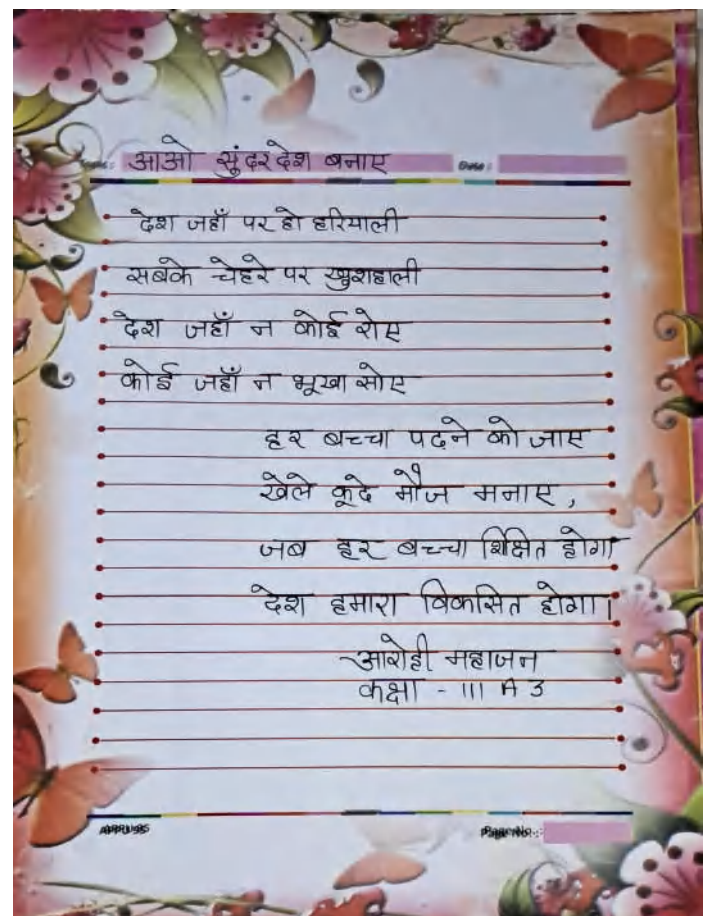 आओ सुंदर देश बनाए
Date :
देश जहाँ पर हो हरियाली
सबके चेहरे पर खुशहाली
देश जहाँ न कोई रोए
कोई जहाँ न भूखा सोए
हर बच्चा पढने को जाए
खेले कूदे मौज मनाए ,
जब हर बच्चा शिक्षित होगा
देश हमारा विकसित होगा।
-आरोही महाजन
कक्षा - III A 3
Page No. :